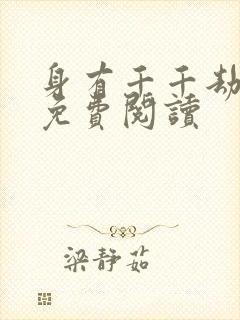 身有千千劫
免費閱讀
梁靜茹